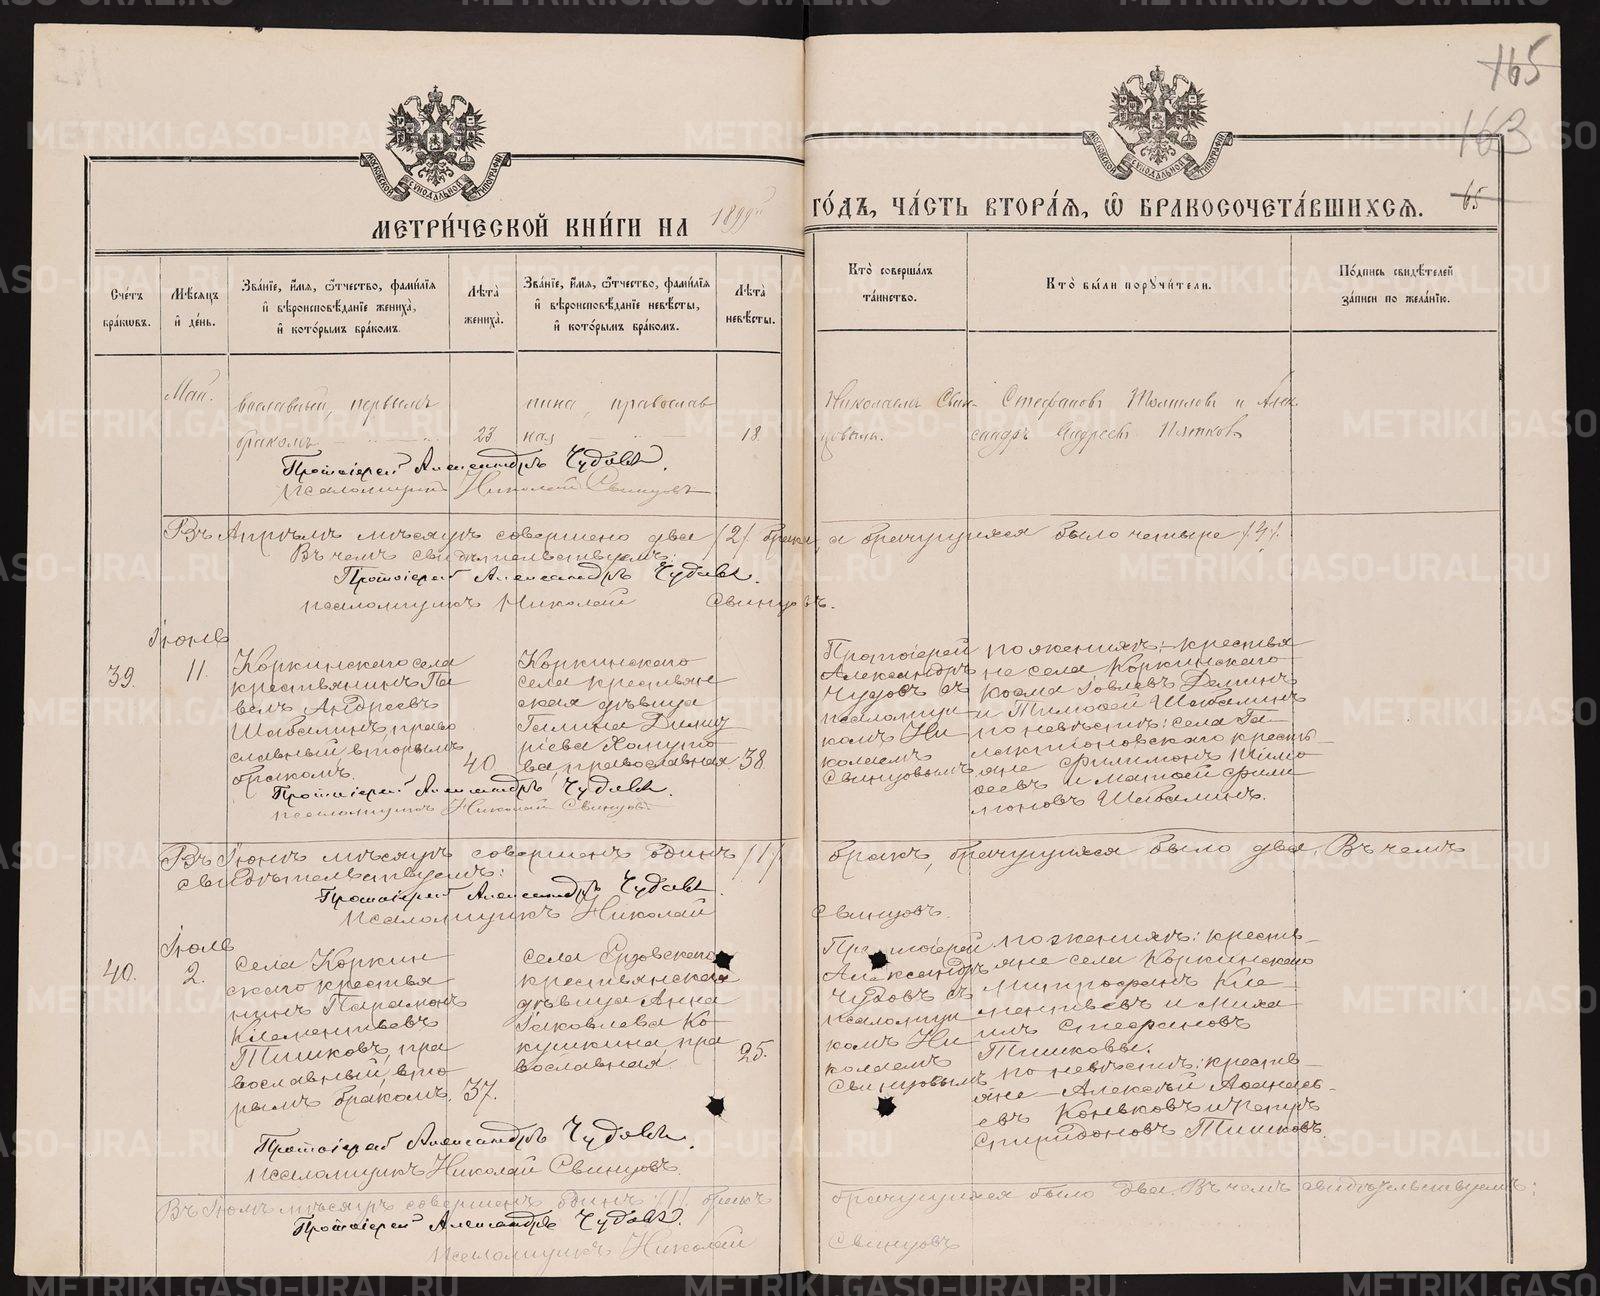 165
163
65
МОСКОВСКОЙ СУНОДАЛЬНОЙ ТИПОГРАФИИ
МОСКОВСКОЙ СУНОДАЛЬНОЙ ТИПОГРАФИИ
МЕТРИ́ЧЕСКОЙ КНИ́ГИ НА 1899й ГО́ДЪ, ЧА́СТЬ ВТОРА́Я, Ѡ БРАКОСОЧЕТА́ВШИХСЯ.
Сче́тъ бра́кѡвъ.
Мѣ́сяцъ и҆ де́нь.
Зва́нїе, и҆́мя, ѻ҆́тчество, фами́лїя и҆ вѣроисповѣ́данїе жениха̀, и҆ кото́рымъ бра́комъ.
Лѣ́та жениха̀.
Зва́нїе, и҆́мя, ѻ҆́тчество, фами́лїя и҆ вѣроисповѣ́данїе невѣ́сты, и҆ кото́рымъ бра́комъ.
Лѣ́та невѣ́сты.
Кто̀ соверша́лъ та́инство.
Кто̀ бы́ли порꙋчи́тели.
По́дпись свидѣ́телей за́писи по жела́нїю.
Май.
вославный, первымъ
бракомъ
23
нина, православ
ная
18
Николаемъ Свин-
цовымъ.
Стефановъ и Алек
сандръ Андреевъ
Протоіерей Александръ Чудовъ.
Псаломщикъ Николай Свинцовъ
Въ Апрѣлѣ мѣсяцѣ совершено два /2/ брака, а брачущихся было четыре /4/.
Въ чемъ свидѣтельствуемъ:
Протоіерей Александръ Чудовъ.
псаломщикъ Николай Свинцовъ.
Іюнь
39.
11.
Коркинскаго села
крестьянинъ Па
велъ Андреевъ
Шабалинъ, право
славный, вторымъ
бракомъ.
40
Коркинскаго
села крестьян
ская дѣвица
Галина Димит
ріева Хомуто
ва, православная.
38
Протоіерей
Александръ
Чудовъ съ
псаломщи
комъ Ни
колаемъ
Свинцовымъ
по женихѣ: крестья
не села Коркинскаго
Косма Іовлевъ Деминъ
и Тимофей Шабалинъ
по невѣстѣ: села Га
лактіоновскаго кресть
яне Филимонъ Тимо
ѳеевъ и Матѳей Фили
моновъ Шабалинъ.
Протоіерей Александръ Чудовъ.
псаломщикъ Николай Свинцовъ
Въ Іюнѣ мѣсяцѣ совершенъ одинъ /1/ бракъ, брачущихся было два. Въ чемъ
свидѣтельствуемъ:
Протоіерей Александръ Чудовъ.
псаломщикъ Николай Свинцовъ.
Іюль
40.
2.
села Коркин
скаго крестья
нинъ Парамонъ
Климентьевъ
Тишковъ, пра
вославный, вто
рымъ бракомъ.
37.
села
крестьянская
дѣвица Анна
Іаковлева Ко
кушкина, пра
вославная.
25.
Протоіерей
Александръ
Чудовъ съ
псаломщи
комъ Ни
колаемъ
Свинцовымъ
по женихѣ: кресть-
яне села Коркинскаго
Митрофанъ Кли-
ментьевъ и Миха
илъ Стефановъ
Тишковы.
по невѣстѣ: кресть-
яне Алексѣй Аѳанась-
евъ Коньковъ и Петръ
Спиридоновъ Тишковъ.
Протоіерей Александръ Чудовъ.
псаломщикъ Николай Свинцовъ
Въ Іюлѣ мѣсяцѣ совершенъ одинъ /1/ бракъ брачущихся было два. Въ чемъ свидѣтельствуемъ:
Протоіерей Александръ Чудовъ.
псаломщикъ Николай Свинцовъ
METRIKI.GASO-URAL.RU